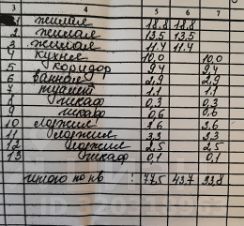 3 4 5 6 7
1 жилая 18.8 18.8
2 жилая 13.5 13.5
3 жилая 11.4 11.4
4 кухня 10,0 10,0
5 коридор 9.4 9.4
6 ванная 2,9 2,9
7 туалет 1.1 1.1
8 шкаф 0,3 0,3
9 шкаф 0,6 0,6
10 лоджия 3.6 3.6
11 лоджия 3.3 3.3
12 лоджия 2,5 2,5
13 шкаф 0,1 0,1
итого по кв 77.5 43.7 33.8